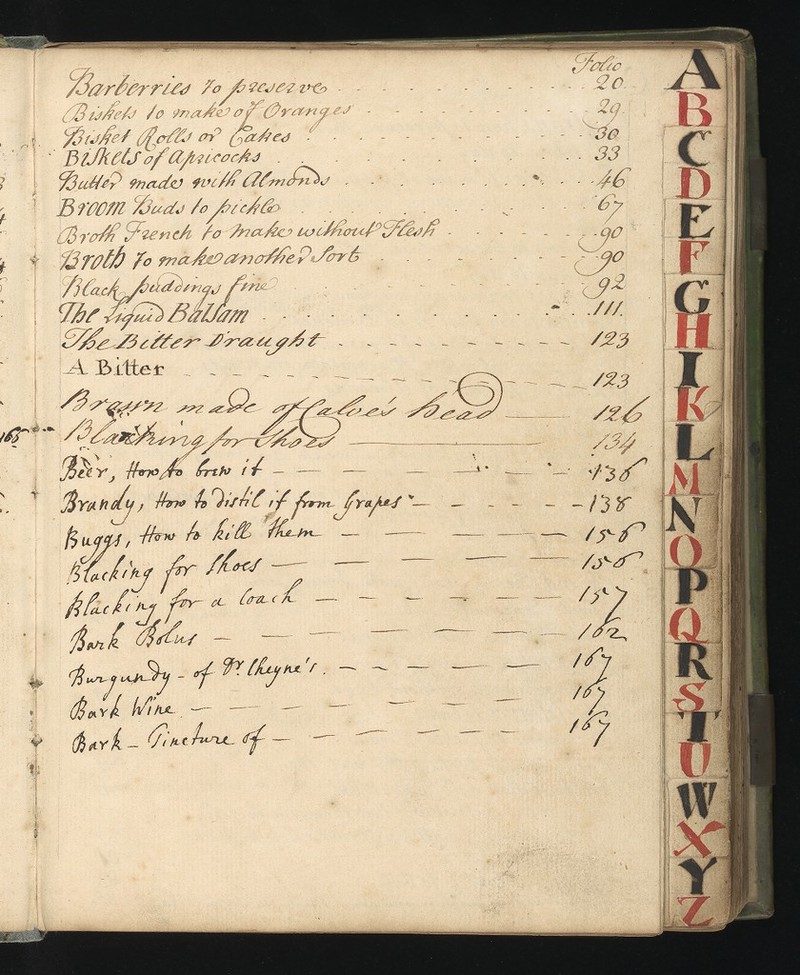 Folio
Barberries To preserve 20
Biskets to make of Oranges 29
Bisket Rolls or Cakes 30
Biskets of Apricocks 33
Butter made with Almonds 46
Broom Buds to pickle 67
Broth French to make without Flesh 90
Broth To make another Sort 90
Black puddings fine 92
The Liquid Balsam 111.
The Bitter Draught 123
A Bitter 123
Brawn made of Calve's head 126
Blacking for Shoes 134
Beer, How to brew it 136
Brandy, How to Distil it from Grapes 138
Buggs, How to kill them 156
Blacking for Shoes 156
Blacking for a Coach 157
Bark Bolus 162
Burgundy - of Dr. Cheyne's. 167
Bark Wine 167
Bark - Tincture of 167
165
A
B
C
D
E
F
G
H
I
K
L
M
N
O
P
Q
R
S
T
U
W
X
Y
Z